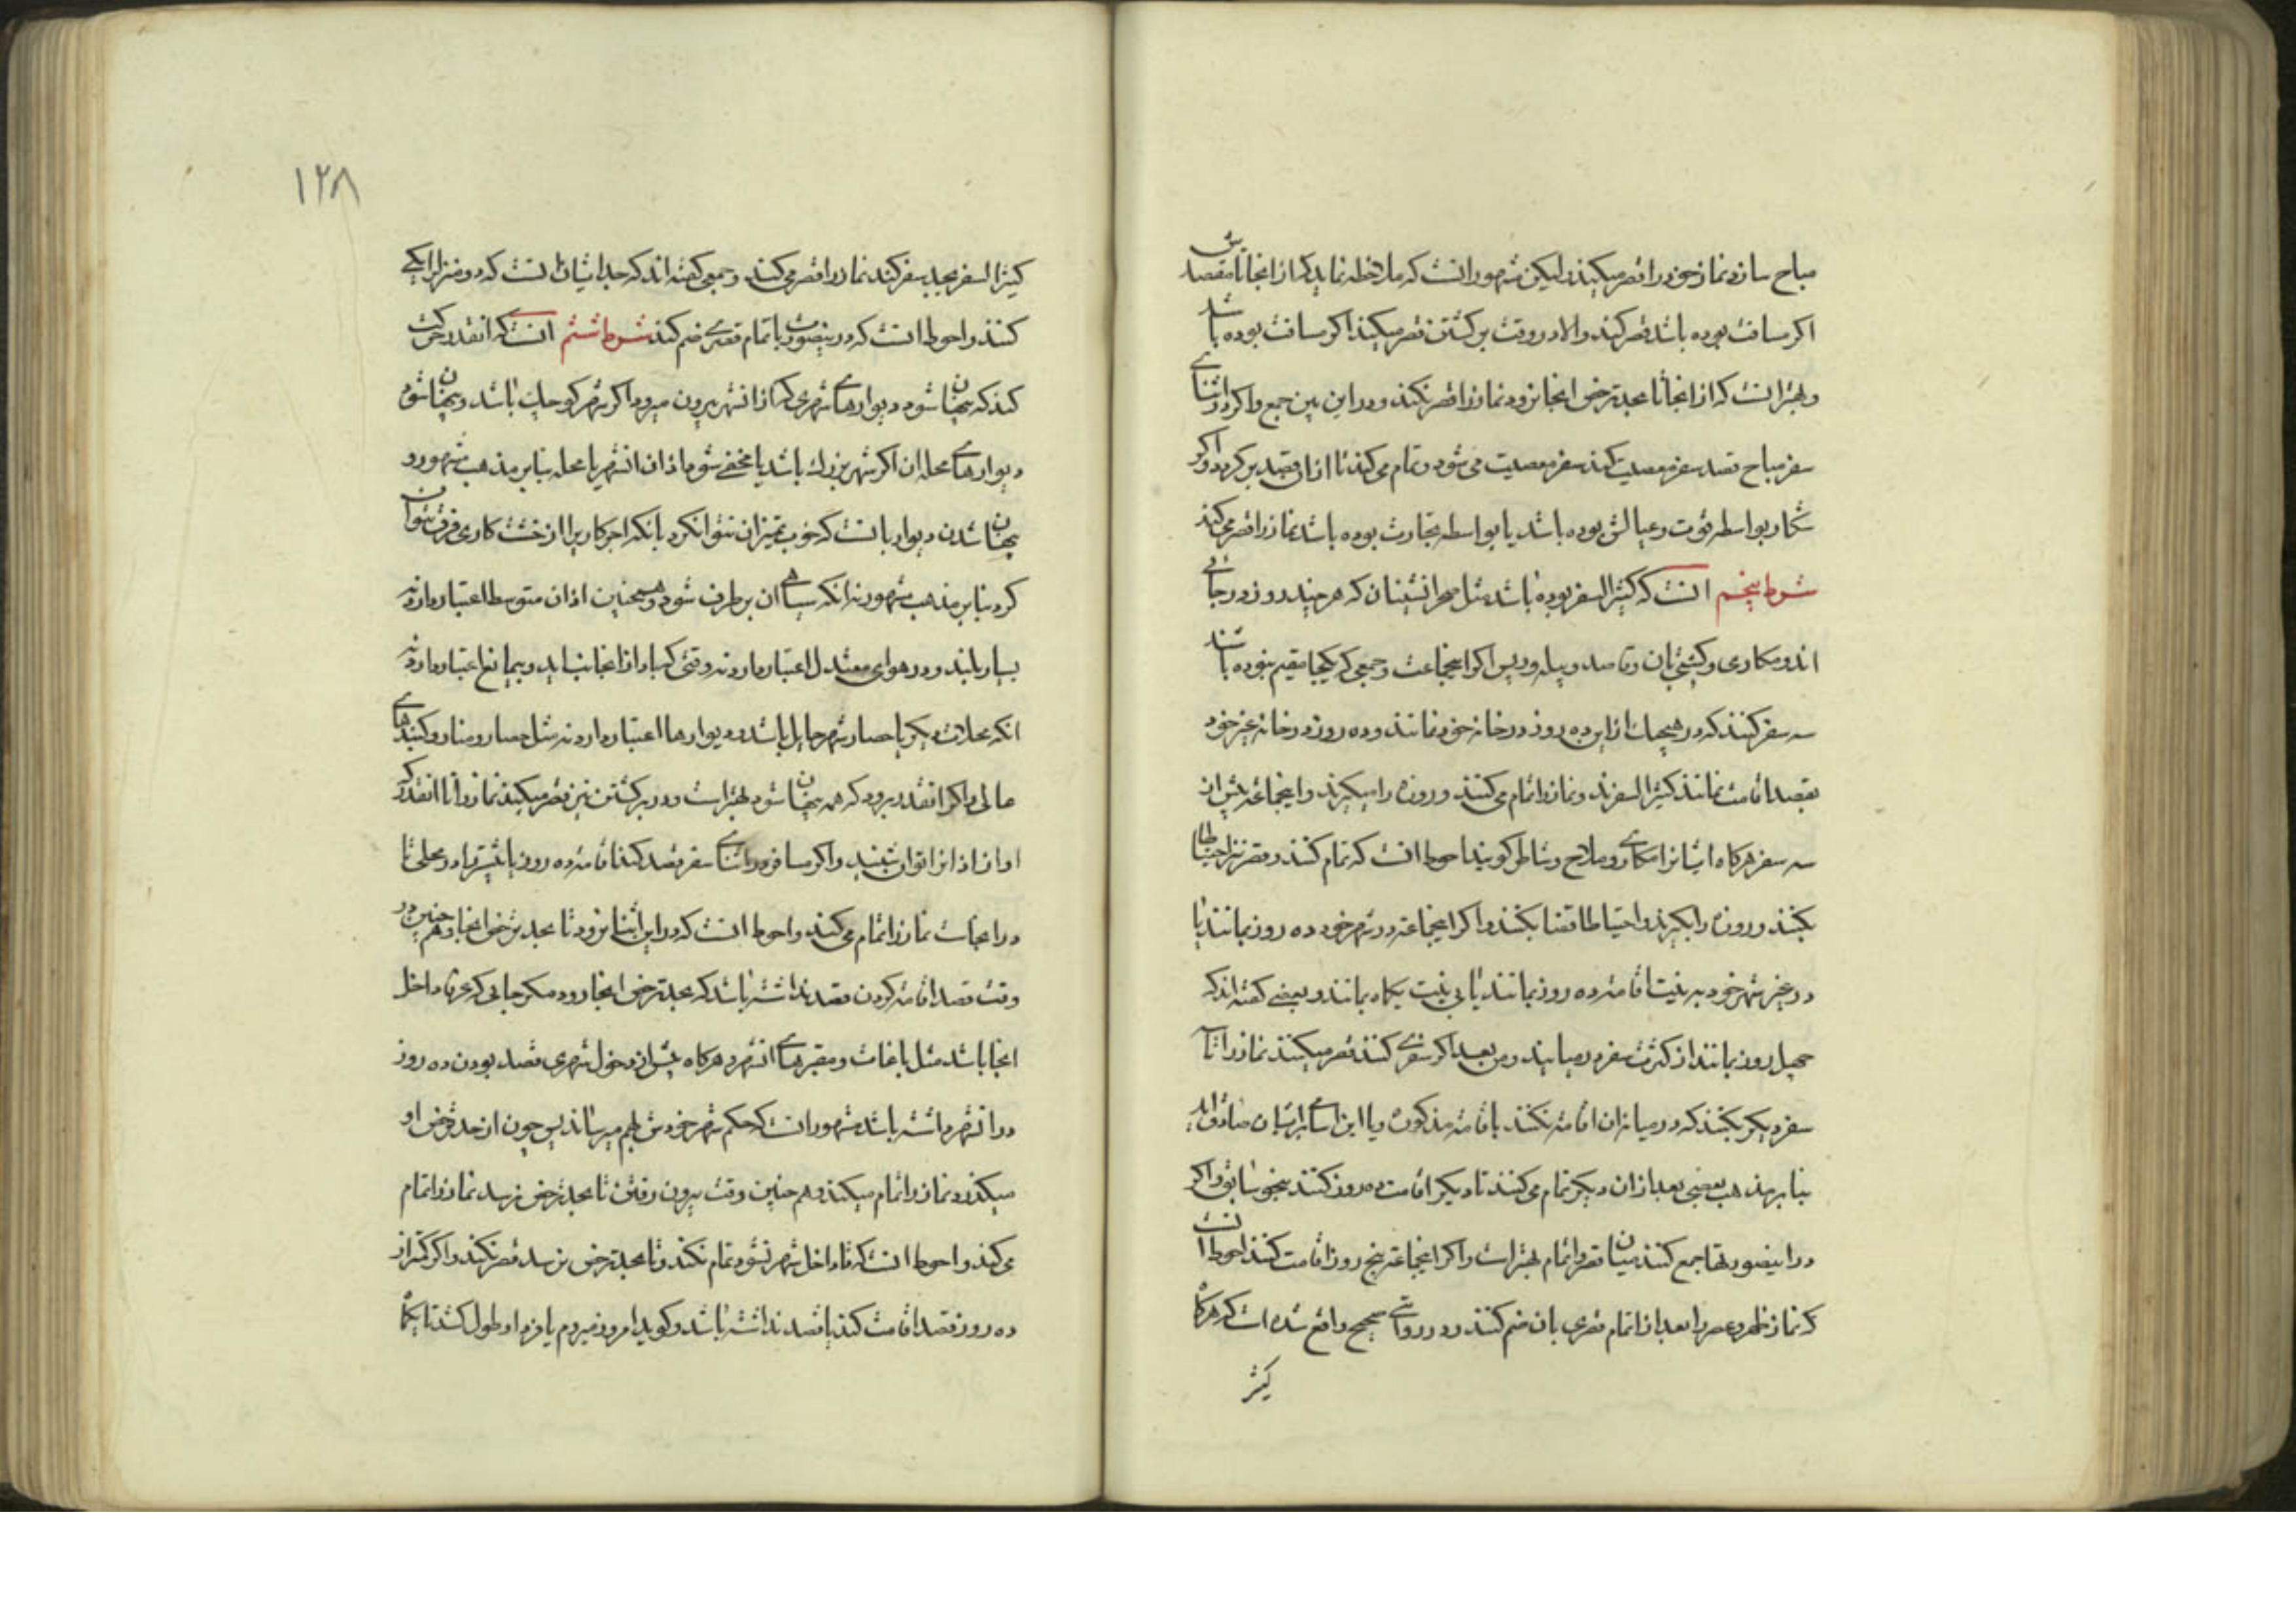 مباح سازد نماز خود را قصر میکند ولیکن مشهور انست که ملاحظه نماید که از انجا تا مقصدش
اکر مسافت بوده باشد قصر کند والا در وقت برکشتن قصر میکند اکر مسافت بوده باشد
وبهتر انست که از انجا تا بحد ترخص انجا نرود نماز را قصر نکند ودر این بین جمع واکر در اثنای
سفر مباح قصد سفر معصیت کند سفر معصیت می شود وتمام می کند تا از ان قصد بر کردد واکر
شکار بواسطه قوت وعیالش بوده باشد یا بواسطه تجارت بوده باشد نماز را قصر می کند
شرط پنجم انست که کثیر السفر بوده باشد مثل صحرا نشینان که هر چند روز در جائی
اند ومکاری وکشتی بان وقاصد وپیله ور پس اکر اینجماعت وجمعی که یکجا مقیم نبوده باشند
سه سفر کنند که در هیچیك از این ده روز در خانه خود نمانند وده روز در خانه غیر خود
بقصد اقامت نمانند کثیر السفرند ونماز را تمام می کنند وروزه را میکیرند واینجماعة پیش از
سه سفر هرکاه ایشانرا مکاری وملاح وشاطر کویند احوط انست که تمام کنند وقصر نیز احتیاطا
بکنند وروزه را بکیرند واحتیاطا قضا بکنند واکر اینجماعة در شهر خود ده روز بمانند یا
در غیر شهر خود به نیت اقامة ده روز بمانند یا بی نیت یکماه بمانند وبعضی کفته اند که
چهل روز بمانند از کثرت سفر در میایند ومن بعد اکر سفری کنند قصر میکنند نماز را تا سه
سفر دیکر بکنند که در میانه ان اقامة نکنند باقامة مذکوره ویا این اسامی بر ایشان صادق اید
بنا بر مذهب بعضی بعد از ان دیکر تمام می کنند تا دیکر اقامت ده روز کنند بنحو سابق واکر
در اینصورتها جمع کنند میان قصر واتمام بهتر است واکر اینجماعة پنج روز اقامت کنند احوط انست
که نماز ظهر وعصر را بعد از اتمام قصری بان ضم کنند ودر روایتی صحیح واقع شده است که هرکاه
کثیر
۱۲۸
کثیر السفر بجد سفر کنند نماز را قصر می کنند وجمعی کفته اند که جد ایشان انست که دو منزل را یکی
کنند واحوط انست که در ینصورت با تمام قصری ضم کند شرط ششم انست که انقدر حرکت
کند که پنهان شود دیوارهای شهری که از انشهر بیرون میرود اکر شهر کوچك باشد وپنهان شود
دیوارهای محله ان اکر شهر بزرك باشد یا مخفی شود اذان انشهر یا محله بنابر مذهب مشهور و
پنهان شدن دیوار بانست که خوب تمیز ان نتوان کرد بانکه اجرکاریرا از خشت کاری فرق نتوان
کرد بنابر مذهب مشهور نه انکه سیاهی ان بر طرف شود وهمچنین اذان متوسط اعتبار دارد نه
بسیار بلند ودر هوای معتدل اعتبار دارد نه وقتی که باد از انجانب اید وبیمانع اعتبار دارد نه
انکه محلات دیکر یا حصار شهر حایل باشد ودیوارها اعتبار دارد نه مثل حصار ومنار وکنبدهای
عالی واکر انقدر برود که همه پنهان شود بهتر است ودر برکشتن نیز قصر میکند نماز را تا انقدر که
اواز اذانرا توان شنید واکر مسافر در اثنای سفر قصد کند اقامة ده روز یا بیشتر در محلی تا
در انجاست نماز را تمام می کند واحوط انست که در این اثنا نرود تا بحد ترخص انجا وهم چنین در
وقت قصد اقامة کردن قصد نداشته باشد که بحد ترخص انجا رود مکر جایی که عرفا داخل
انجا باشد مثل باغات ومقبرهای انشهر وهرکاه پیش از دخول شهری قصد بودن ده روز
در انشهر داشته باشد مشهور انست که حکم شهر خودش بهم میرساند پس چون از حد ترخص او
میکذرد نماز را تمام میکند وهم چنین وقت بیرون رفتن تا بحد ترخص نرسد نماز را تمام
می کند واحوط انست که تا داخل شهر نشود تمام نکند وتا بحد ترخص نرسد قصر نکند واکر کمتر از
ده روز قصد اقامت کند یا قصد نداشته باشد وکوید امروز میروم یا فردا وطول کشد تا یکماه